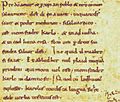 Pro do amur & p xpian poblo & nro comun
saluament. dist di en auant. inquant ds
sauir & podir me dunat. sisaluarai eo
cist meon fradre karlo. & in aiudha
& in cad huna cosa. sicū om p dreit son
fradra saluar dift. Ino quid il mi altre
si faz&. Et abludher nul plaid nūquā
prindrai qui meon uol cist meon fradre
karle in damno sit. Quod cū lodhuuic
explesset. karolus teudisca lingua sic hec
eade uerba testatus est.